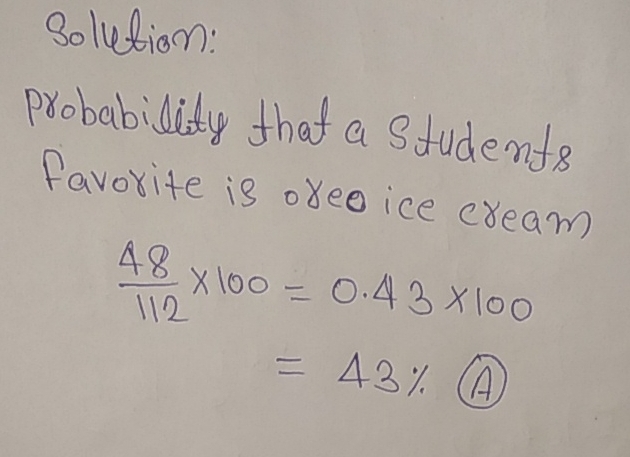 Solution:
Probability that a Students
favorite is oreo ice cream
48/112 × 100 = 0.43 × 100
= 43% Ⓐ